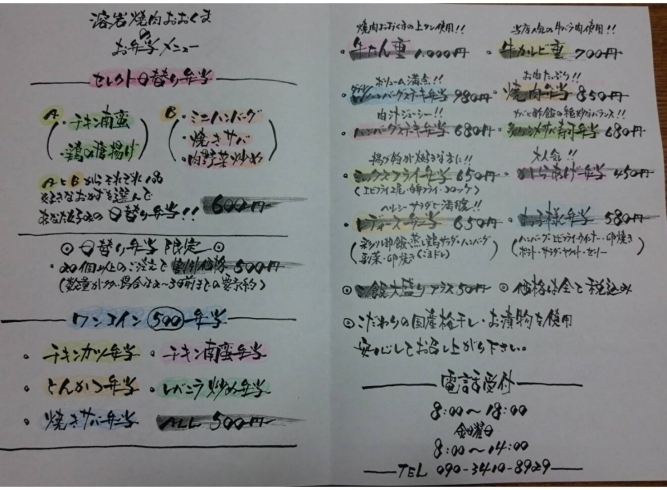 溶岩焼肉おおくま
の
お弁当メニュー
セレクト日替り弁当
A ・チキン南蛮
・鶏の唐揚げ
B ・ミニハンバーグ
・焼きサバ
・肉野菜炒め
AとBからそれぞれ1品
好きなおかずを選んで
あなた好みの日替り弁当!! 600円
◎日替り弁当 限定◎
・20個以上のご注文で 特別価格 500円
ワンコイン 500 弁当
・チキンカツ弁当 ・チキン南蛮弁当
・とんかつ弁当 ・レバニラ炒め弁当
・焼きサバ弁当 ALL 500円
焼肉おおくまの上タン使用!!
・牛たん重 1.000円
当店人気の牛バラ肉使用!!
・牛カルビ重 700円
ボリューム満点!!
ハンバーグステーキ弁当 980円
お肉たっぷり!!
・焼肉弁当 850円
肉汁ジューシー!!
・ハンバーグステーキ弁当 680円
サバと酢飯の絶妙なバランス!!
サバ寿司弁当 680円
揚げ物が好きな方に!!
・ミックスフライ弁当 650円
(エビフライ2尾・白身フライ・コロッケ)
大人気!!
弁当 450円
ヘルシーサラダで満腹!!
・レディース弁当 650円
・お子様弁当 580円
(ハンバーグ・エビフライ・ウインナー・卵焼き
ポテト・サラダ・ヤクルト・ゼリー)
◎ご飯大盛りプラス50円 ◎価格は全て税込み
◎こだわりの国産梅干し・お漬物を使用
安心してお召し上がり下さい。
電話受付
8:00〜18:00
金曜日
8:00〜14:00
TEL 090-3410-8929